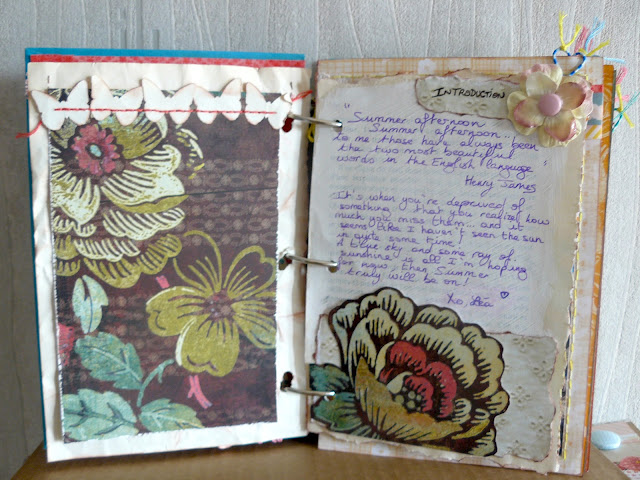 INTRODUCTION
"Summer afternoon
Summer afternoon...
to me those have always been
the two most beautiful
words in the English language"
Henry James
It's when you're deprived of
something that you realize how
much you miss them... and it
seems like I haven't seen the sun
in quite some time!
A blue sky and some ray of
sunshine is all I'm hoping
for now, then Summer
truly will be on!
Xo, Léa ♡